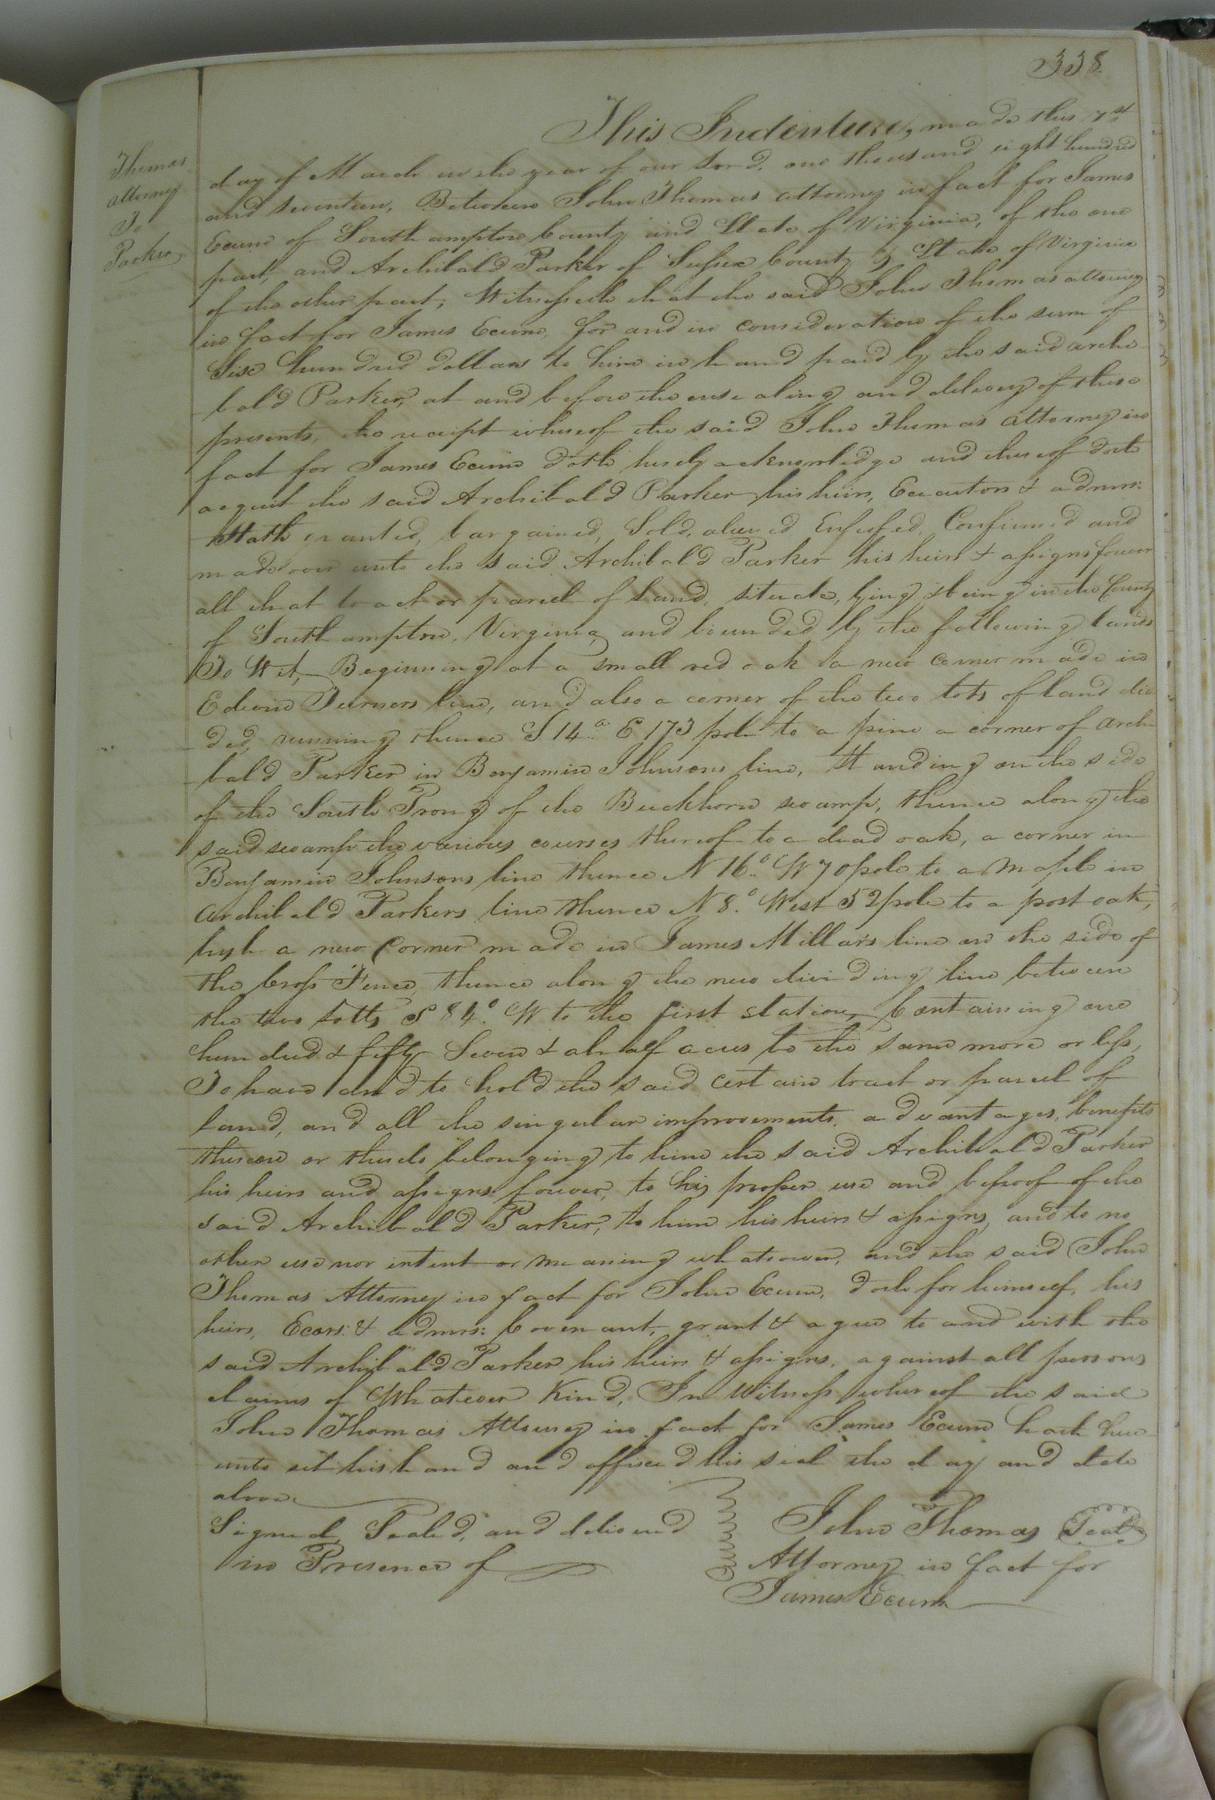 338
Thomas
attorney
To
Parker
This Indenture, made this 7st
day of March in the year of our Lord, one thousand eight hundred
and seventeen, Between John Thomas attorney in fact for James
Ecum of Southampton County and State of Virginia, of the one
part, and Archibald Parker of Sussex County & State of Virginia
of the other part; Witnesseth that the said John Thomas attorney
in fact for James Ecum, for and in consideration of the sum of
Six hundred dollars to him in hand paid by the said Archi
bald Parker, at and before the ensealing and delivery of these
presents, the receipt whereof the said John Thomas Attorney in
fact for James Ecum doth hereby acknowledge and thereof doth
acquit the said Archibald Parker, his heirs, Executors & admrs:
Hath granted, bargained, Sold, aliened Enfeofed, Confirmed and
made over unto the said Archibald Parker his heirs & assigns forever
all that tract or parcel of Land, situate, lying & being in the County
of Southampton, Virginia, and bounded by the following lands
To Wit, Beginning at a small red oak a new corner made in
Edwin Turners line, and also a corner of the two lots of land divi
ded, running thence S 14.° E 173 pole to a pine a corner of Archi
bald Parker in Benjamin Johnsons line, Standing on the side
of the South Prong of the Buckhorn swamp, thence along the
said swamp the various courses thereof to a dead oak, a corner in
Benjamin Johnsons line thence N 16.° W 70 pole to a maple in
Archibald Parkers line thence N 8.° West 52 pole to a post oak,
bush a new corner made in James Millars line on the side of
the Cross Fence, thence along the new dividing line between
the two Lotts S 84.° W to the first station, Containing one
hundred & fifty Seven & a half acres be the same more or less,
To have and to hold the said certain tract or parcel of
land, and all the singular improvements, advantages, benefits
thereon or thereto belonging to him the said Archibald Parker
his heirs and assigns forever, to his proper use and behoof of the
said Archibald Parker, to him his heirs & assigns, and to no
other use nor intent or meaning whatsoever, and the said John
Thomas Attorney in fact for John Ecum, doth for himself, his
heirs, Ecors: & admrs: Covenant, grant & agree to and with the
said Archibald Parker his heirs & assigns, against all persons
claims of Whatever Kind, In Witness whereof the said
John Thomas Attorney in fact for James Ecum hath here
unto set his hand and affixed his seal the day and date
above
Signed, Sealed, and delivered
in Presence of
John Thomas Seal
Attorney in fact for
James Ecum